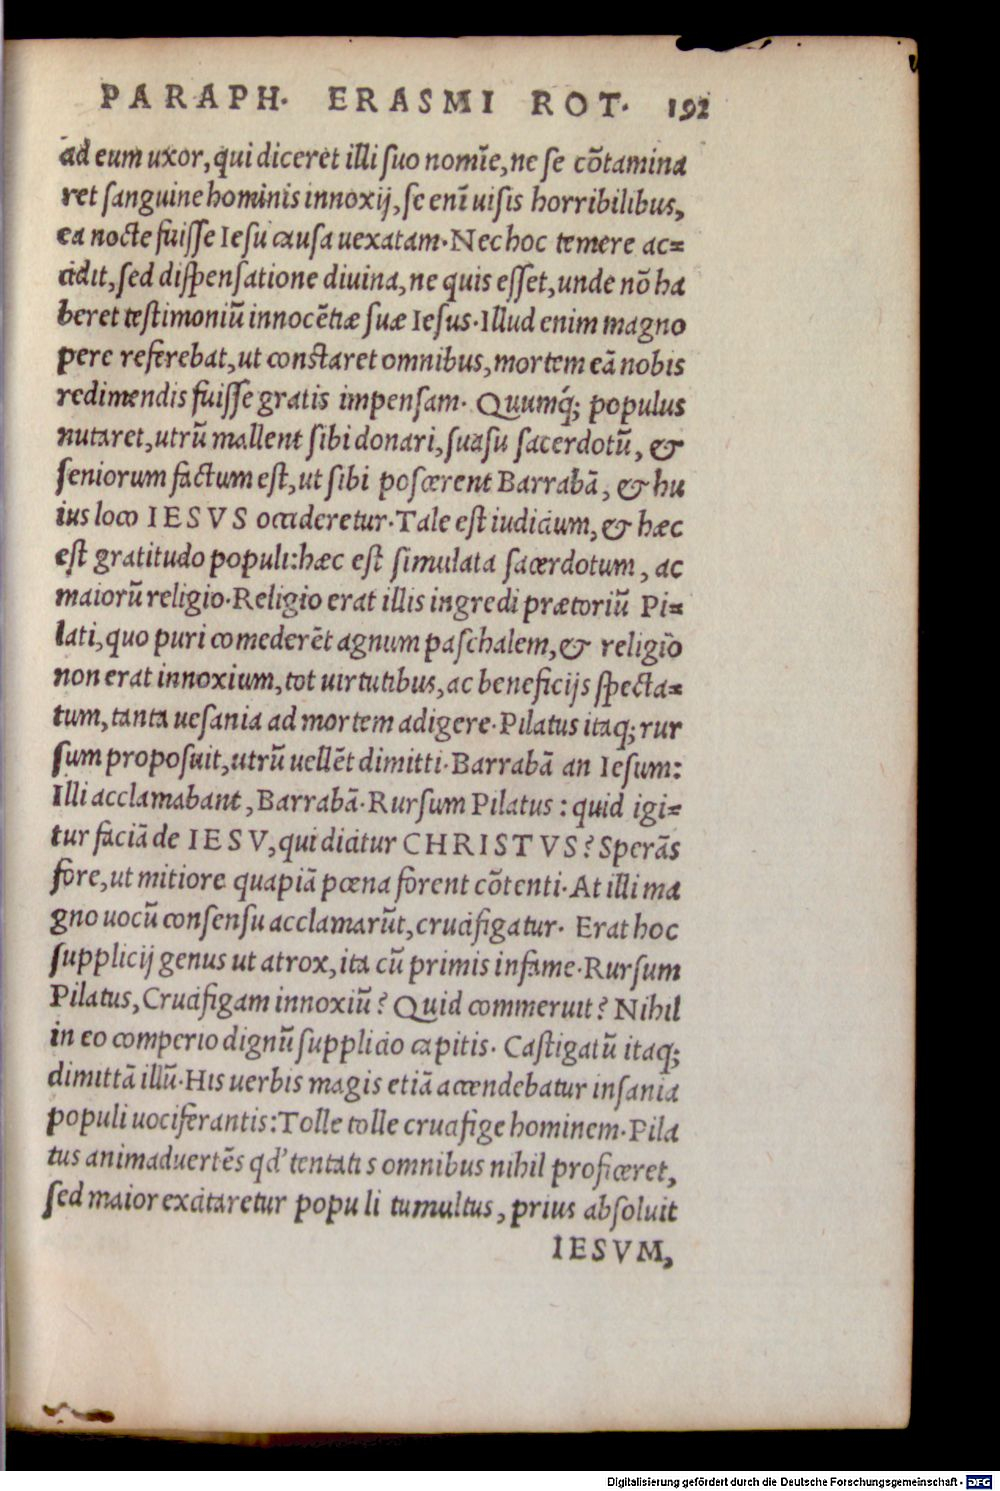 PARAPH. ERASMI ROT. 192
ad eum uxor, qui diceret illi suo nomīe, ne se cōtamina
ret sanguine hominis innoxij, se enī uisis horribilibus,
ea nocte fuisse Iesu causa uexatam. Nec hoc temere ac=
cidit, sed dispensatione diuina, ne quis esset, unde nō ha
beret testimoniū innocētiæ suæ Iesus. Illud enim magno
pere referebat, ut constaret omnibus, mortem eā nobis
redimendis fuisse gratis impensam. Quumq́; populus
nutaret, utrū mallent sibi donari, suasu sacerdotū, &
seniorum factum est, ut sibi poscerent Barrabā, & hu
ius loco IESVS occideretur. Tale est iudicium, & hæc
est gratitudo populi: hæc est simulata sacerdotum, ac
maiorū religio. Religio erat illis ingredi prætoriū Pi=
lati, quo puri comederēt agnum paschalem, & religio
non erat innoxium, tot uirtutibus, ac beneficijs specta=
tum, tanta uesania ad mortem adigere. Pilatus itaq; rur
sum proposuit, utrū uellēt dimitti. Barrabā an Iesum:
Illi acclamabant, Barrabā. Rursum Pilatus: quid igi=
tur faciā de IESV, qui dicitur CHRISTVS? Sperās
fore, ut mitiore quapiā pœna forent cōtenti. At illi ma
gno uocū consensu acclamarūt, crucifigatur. Erat hoc
supplicij genus ut atrox, ita cū primis infame. Rursum
Pilatus, Crucifigam innoxiū? Quid commeruit? Nihil
in eo comperio dignū supplicio capitis. Castigatū itaq;
dimittā illū. His uerbis magis etiā accendebatur insania
populi uociferantis: Tolle tolle crucifige hominem. Pila
tus animaduertēs qd' tentatis omnibus nihil proficeret,
sed maior excitaretur populi tumultus, prius absoluit
IESVM,
Digitalisierung gefördert durch die Deutsche Forschungsgemeinschaft - DFG